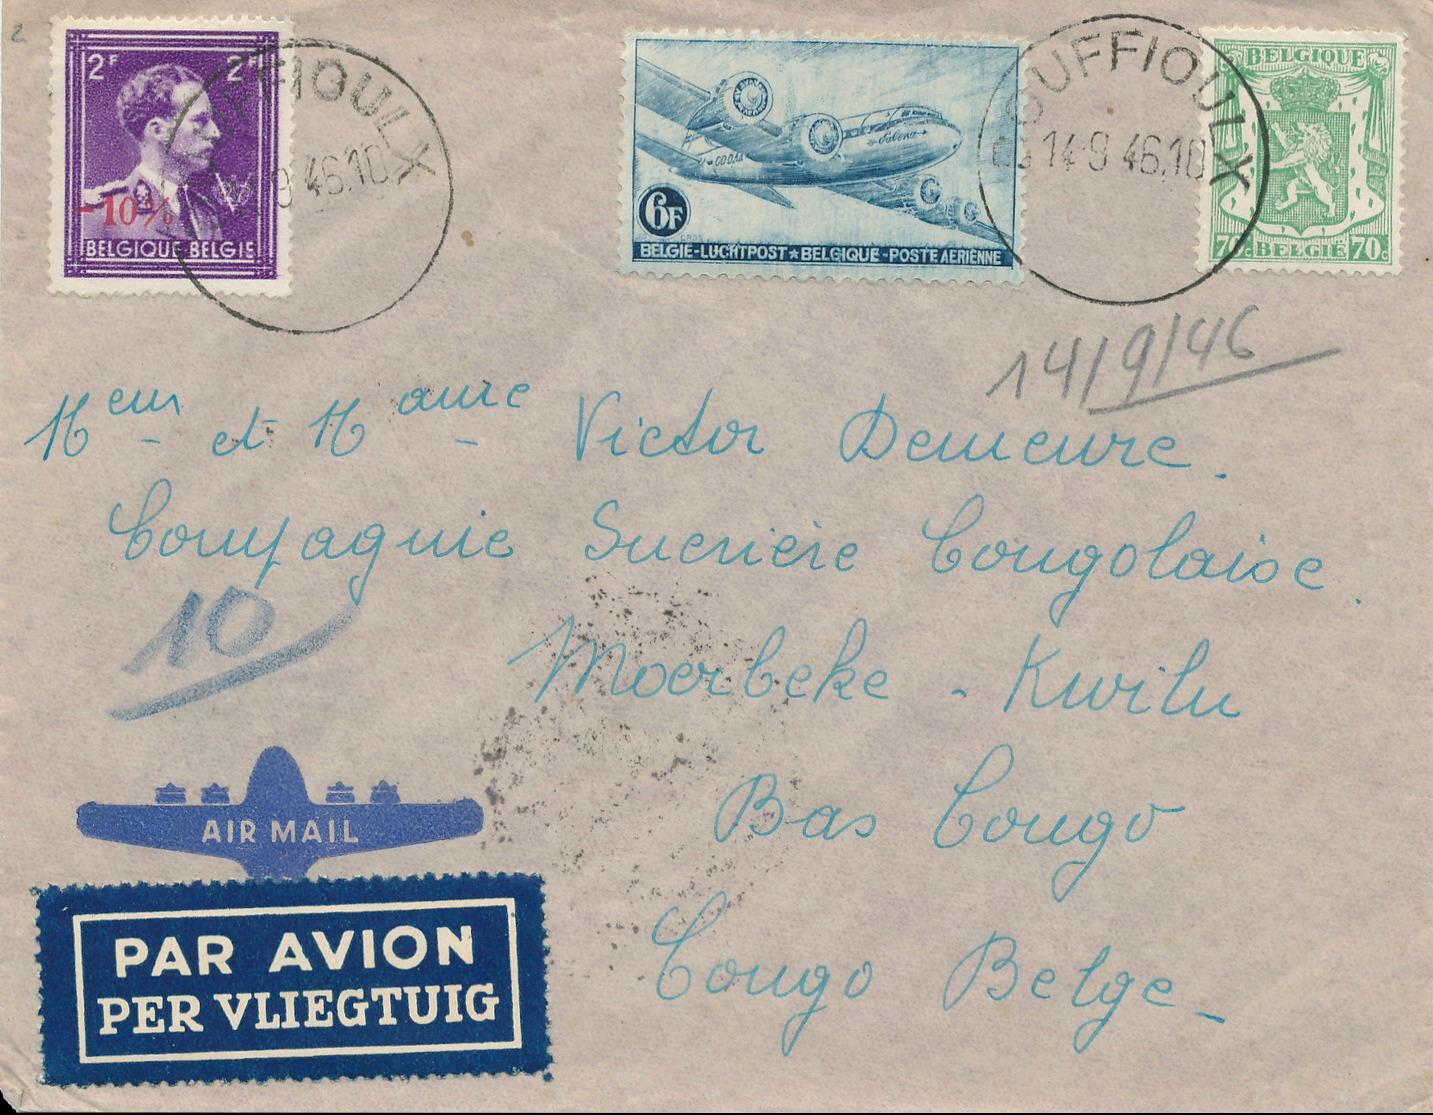 2
2F 2F
-10%
BELGIQUE-BELGIE
BOUFFIOULX
14-9 46.10
Sabena
OO DAA
6F
BELGIE-LUCHTPOST★BELGIQUE-POSTE AERIENNE
BOUFFIOULX
14-9 46.10
BELGIQUE
70c BELGIE 70c
14/9/46
Meur et Mame Victor Demeure.
Compagnie Sucrière Congolaise.
10
Moerbeke - Kwilu
Bas Congo
AIR MAIL
PAR AVION
PER VLIEGTUIG
Congo Belge -